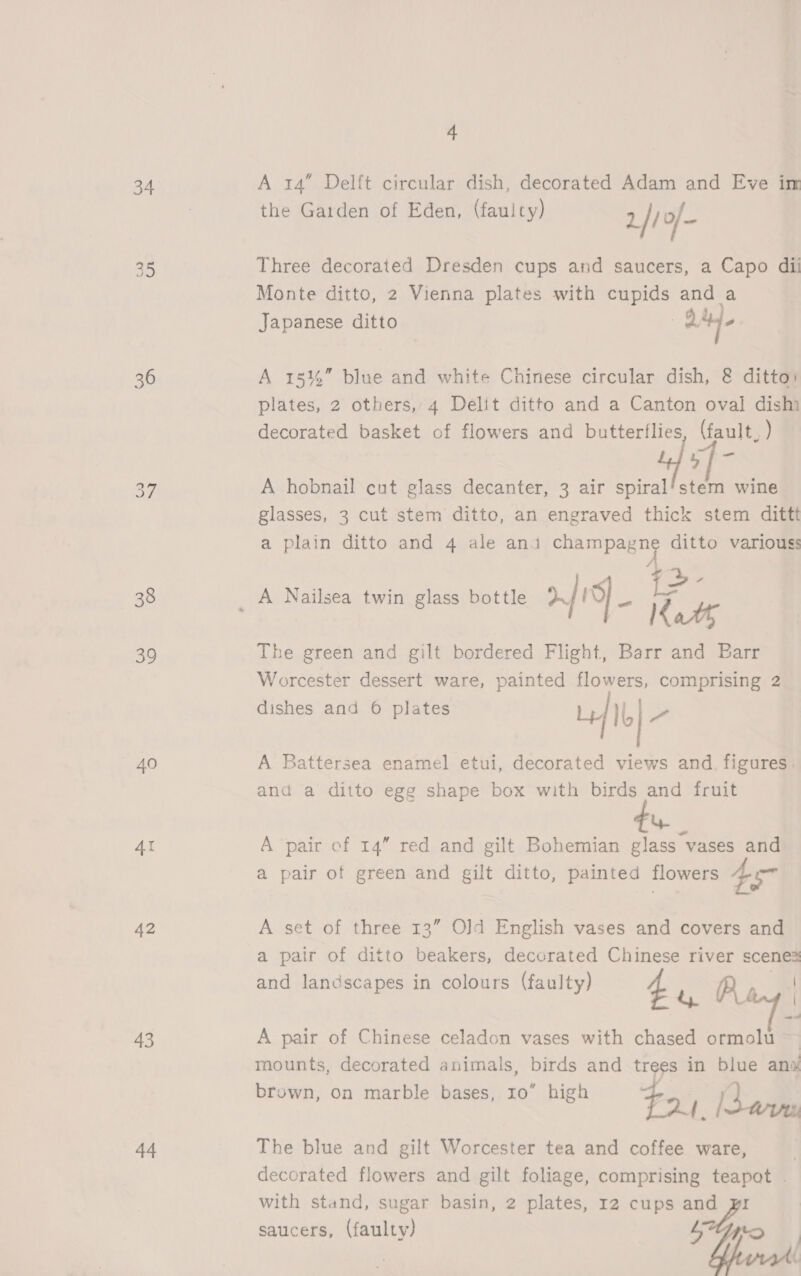 4
34 A 14” Delft circular dish, decorated Adam and Eve in
the Garden of Eden, (faulty) 2/10/-
35 Three decorated Dresden cups and saucers, a Capo di
Monte ditto, 2 Vienna plates with cupids and a
Japanese ditto 24/-
36 A 15½” blue and white Chinese circular dish, 8 ditto
plates, 2 others, 4 Delit ditto and a Canton oval dish
decorated basket of flowers and butterflies, (fault,)
4/5/-
37 A hobnail cut glass decanter, 3 air spiral stem wine
glasses, 3 cut stem ditto, an engraved thick stem ditt
a plain ditto and 4 ale and champagne ditto various
£3-
38 A Nailsea twin glass bottle 2/15/- Katz
39 The green and gilt bordered Flight, Barr and Barr
Worcester dessert ware, painted flowers, comprising 2
dishes and 6 plates 4/16/-
40 A Battersea enamel etui, decorated views and figures
and a ditto egg shape box with birds and fruit
£4-
41 A pair of 14” red and gilt Bohemian glass vases and
a pair of green and gilt ditto, painted flowers £5
42 A set of three 13” Old English vases and covers and
a pair of ditto beakers, decorated Chinese river scenes
and landscapes in colours (faulty) £4 Ray
43 A pair of Chinese celadon vases with chased ormolu
mounts, decorated animals, birds and trees in blue and
brown, on marble bases, 10” high £21.
44 The blue and gilt Worcester tea and coffee ware,
decorated flowers and gilt foliage, comprising teapot
with stand, sugar basin, 2 plates, 12 cups and
saucers, (faulty)